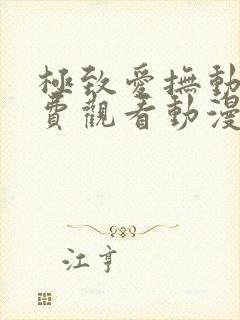 極致愛撫動
費觀看動漫
江亨